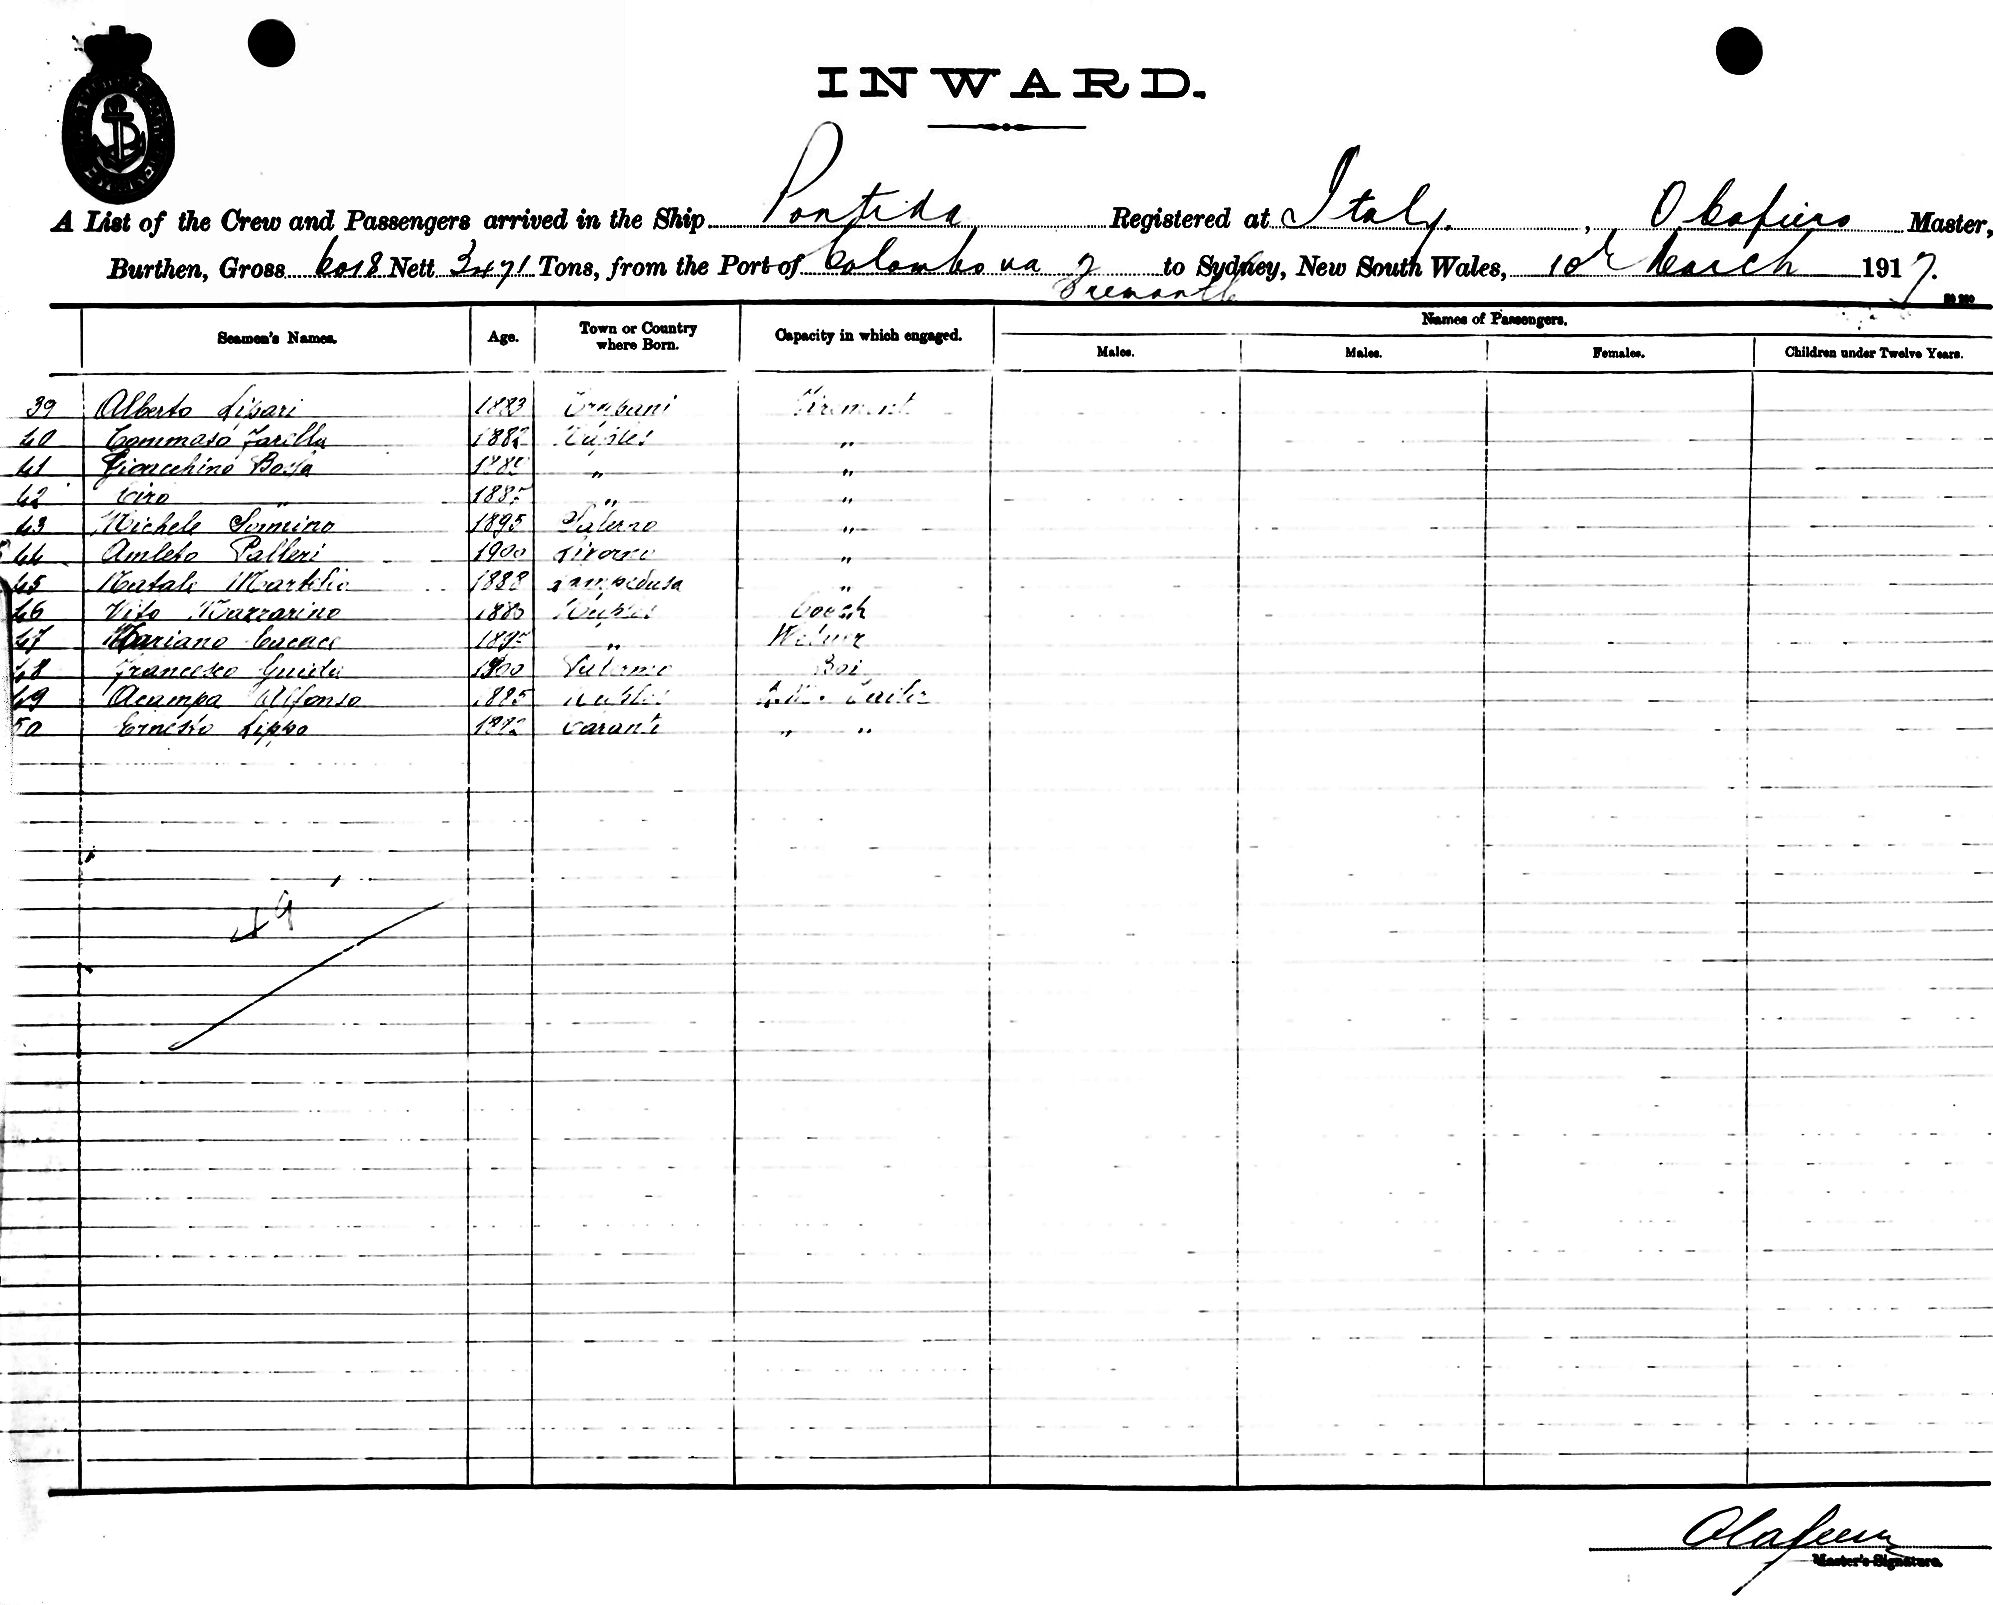 INWARD.
A List of the Crew and Passengers arrived in the Ship Pontida Registered at Italy. , O Cafiero Master,
Burthen, Gross 6018 Nett 3471 Tons, from the Port of Colombo via to Sydney, New South Wales, 10 March 1917.
Fremantle
Seamen's Names. Age. Town or Country where Born. Capacity in which engaged. Names of Passengers.
Males. Males. Females. Children under Twelve Years.
39 Alberto Lipari 1883 Trapani Firemant
40 Tommaso Zarilla 1882 Naples „
41 Gioacchino Bossa „ „
42 Ciro „ 1887 „ „
43 Michele 1895 Salerno „
44 Amleto Palleri 1900 Livorno „
45 Natale Martilio 1888 Lampedusa „
46 Vito Mazzarino 1880 Naples Coock
47 Mariano Cacace „
48 Francesco Guida 1900 Palermo Boi
49 Acampa Alfonso 1885 Naples
50 Ernesto Lippo Taranto „ „
49
Master's Signature.